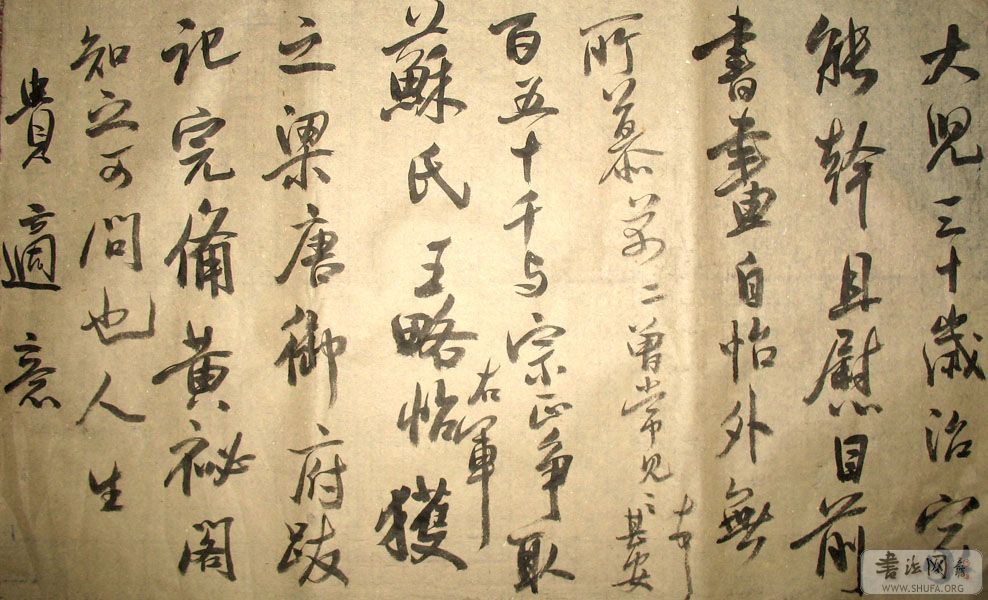 大児三十歲治家
能幹且慰目前
書畫自怡外無
所慕二曾常見〻甚安
百五十千与宗正争取
蘇氏王略帖獲
右軍
之梁唐御府跋
記完備黄祕閣
知之可問也人生
貴適意
書法网
WWW.SHUFA.ORG